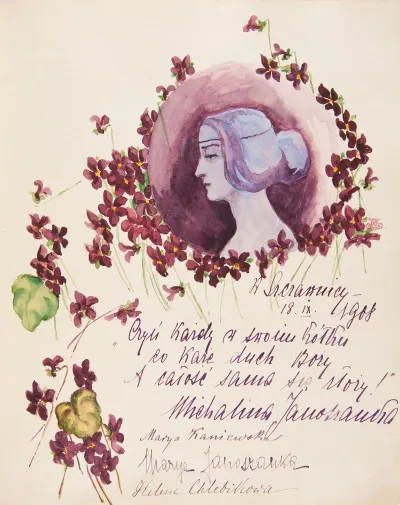 W Szczawnicy
18.IX. 1908
"Czyń każdy w swoim kółku
co każe duch Boży
A całość sama się złoży!"
Michalina Janoszanka
Marya Kaniewska
Marya Janoszanka
Helena Chlebikowa